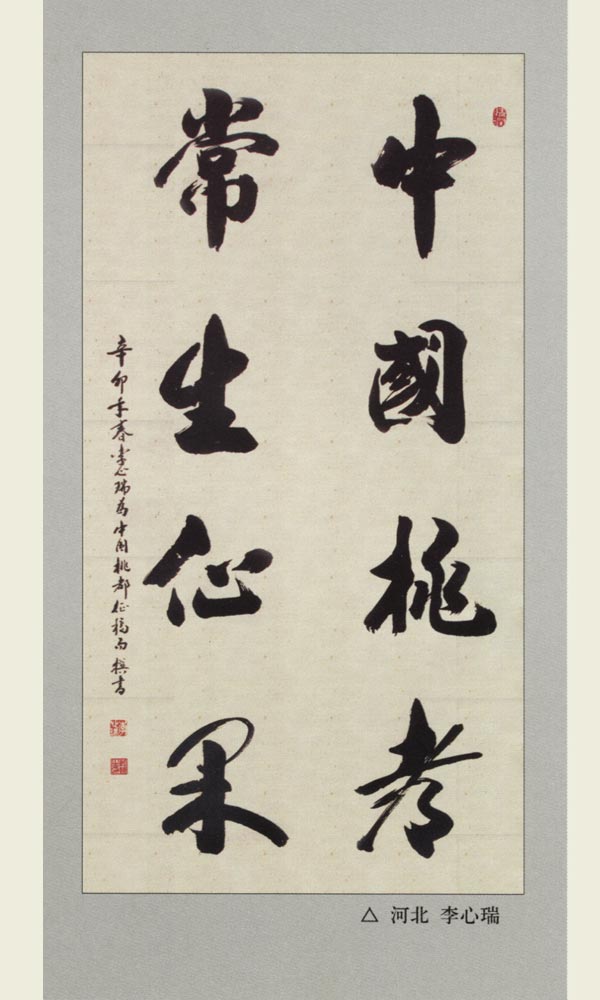 中國桃都
常生仙果
辛卯年春李心瑞為中国桃都征稿而撰書
△ 河北 李心瑞